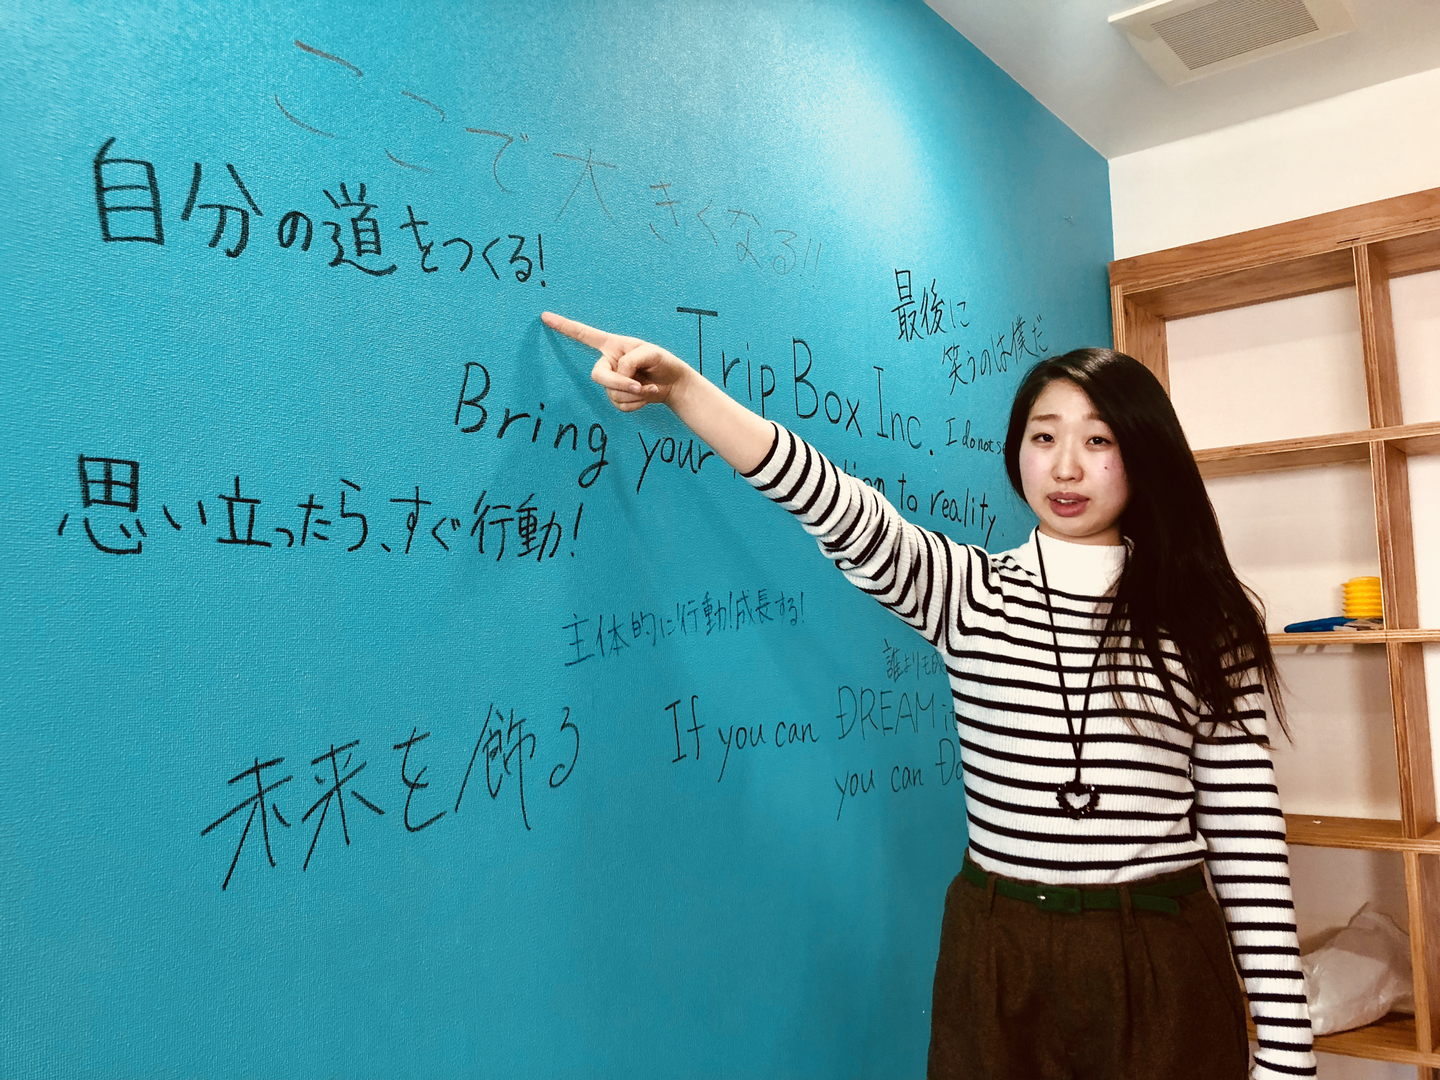 ここで大きくなる!!
自分の道をつくる!
最後に
笑うのは僕だ
Trip Box Inc.
I do not
Bring your
to reality
思い立ったら、すぐ行動!
主体的に行動!成長する!
誰よりも
未来を飾る
If you can DREAM it
you can